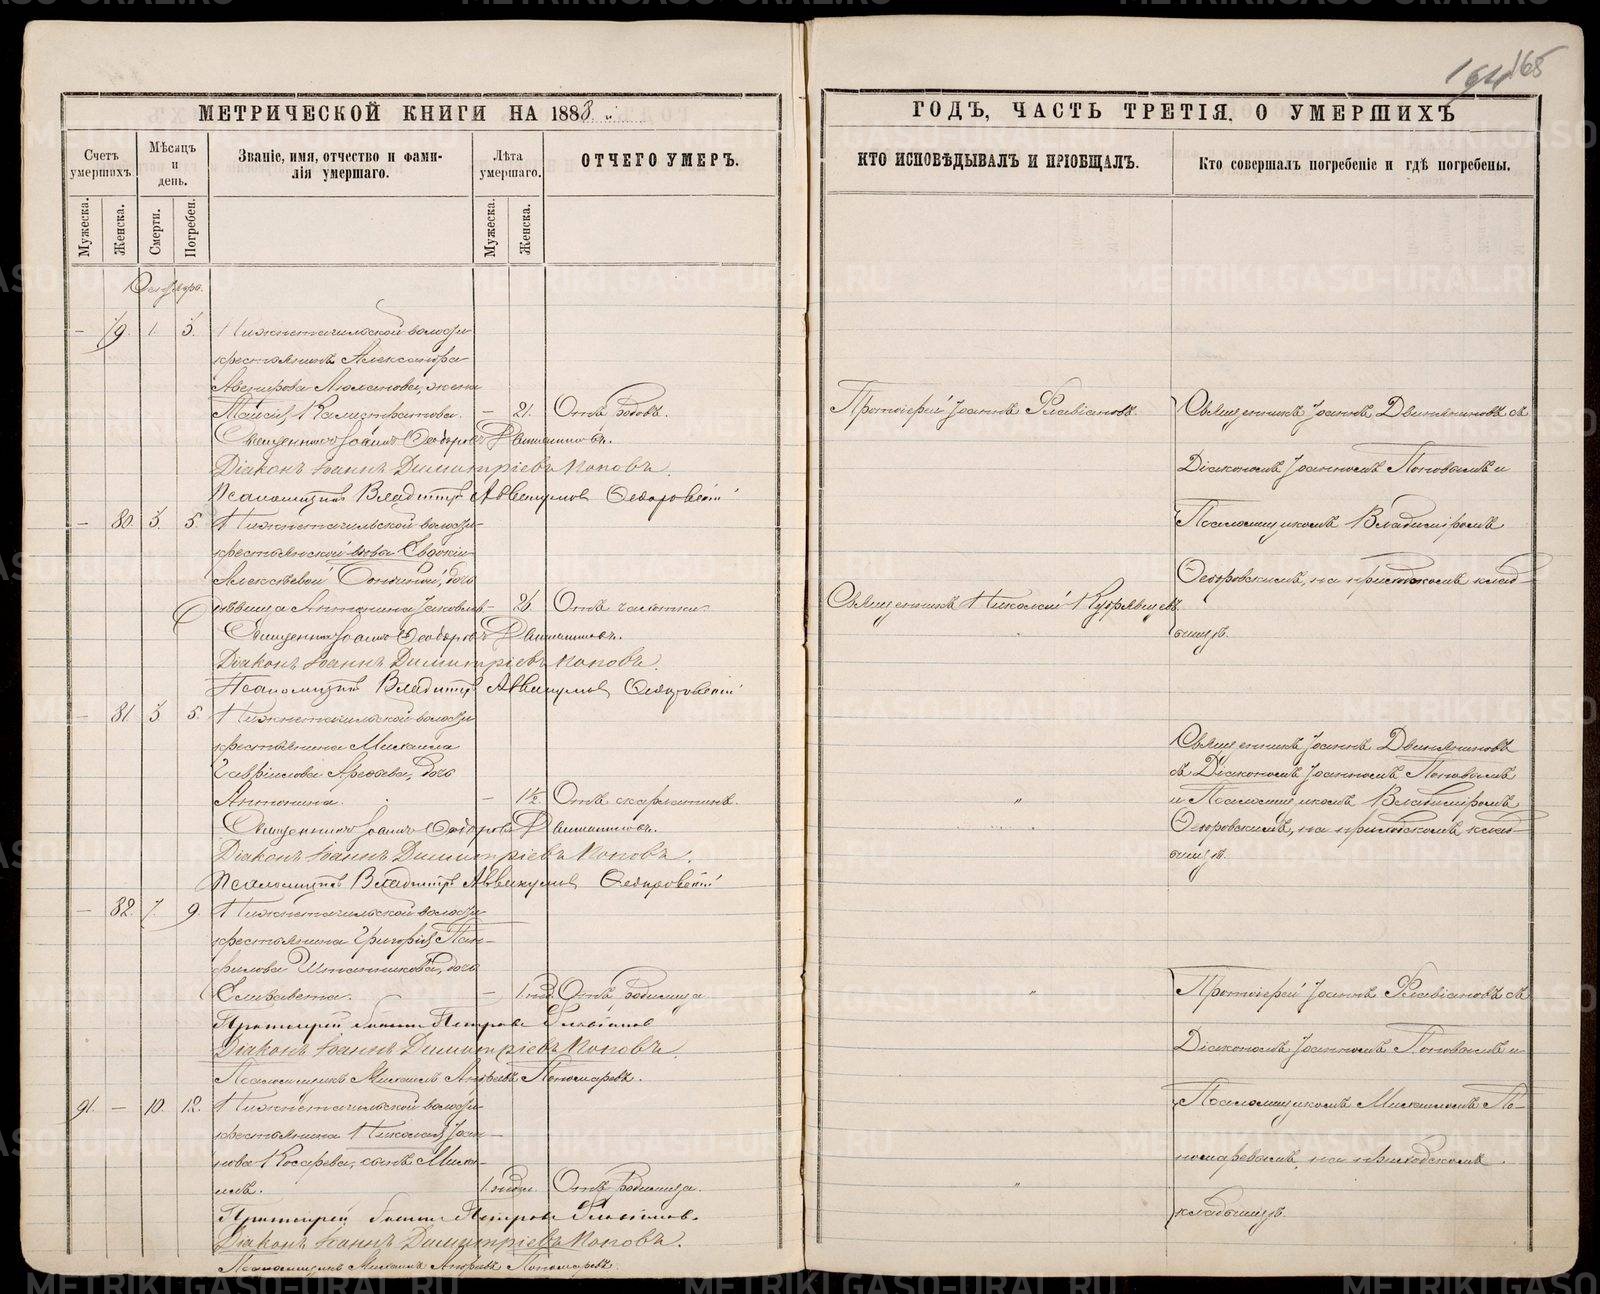 164 165
МЕТРИЧЕСКОЙ КНИГИ НА 1883
ГОДЪ, ЧАСТЬ ТРЕТІЯ, О УМЕРШИХЪ
Счетъ умершихъ.
Мѣсяцъ и день.
Званіе, имя, отчество и фами-
лія умершаго.
Лѣта умершаго.
ОТЧЕГО УМЕРЪ.
КТО ИСПОВѢДЫВАЛЪ И ПРІОБЩАЛЪ.
Кто совершалъ погребеніе и гдѣ погребены.
Мужеска.
Женска.
Смерти.
Погребен.
Мужеска.
Женска.
– 79. 1. 3. Нижнетагильской волости
крестьянина Александра
Авенирова жена
Таисія Калистратова. – 21. Отъ родовъ.
Священникъ Іоаннъ Ѳеодоровъ
Діаконъ Іоаннъ Димитріевъ Поповъ.
Псаломщикъ Владиміръ Аввакумовъ Ѳедоровскій
– 80. 3. 5. Нижнетагильской волости
крестьянской вдовы Евдокіи
Алексѣевой дочь
дѣвица Антонина Іаковлева – 26. Отъ чахотки.
Священникъ Іоаннъ Ѳеодоровъ
Діаконъ Іоаннъ Димитріевъ Поповъ.
Псаломщикъ Владиміръ Аввакумовъ Ѳедоровскій
– 81. 3. 5. Нижнетагильской волости
крестьянина Михаила
Гавріилова Арефьева, дочь
Антонина. – 1½. Отъ скарлатины.
Священникъ Іоаннъ Ѳеодоровъ
Діаконъ Іоаннъ Димитріевъ Поповъ.
Псаломщикъ Владиміръ Аввакумовъ Ѳедоровскій
– 82. 7. 9. Нижнетагильской волости
крестьянина Григорія Пан-
филова дочь
Елизавета. – 1 нед. Отъ родимца
Протоіерей Іоаннъ Петровъ Флавіановъ
Діаконъ Іоаннъ Димитріевъ Поповъ.
Псаломщикъ Михаилъ Андреевъ Пономаревъ.
91. – 10. 12. Нижнетагильской волости
крестьянина Николая Іоан-
нова Косарева, сынъ Миха-
илъ. 1 недѣл. Отъ родимца.
Протоіерей Іоаннъ Петровъ Флавіановъ.
Діаконъ Іоаннъ Димитріевъ Поповъ.
Псаломщикъ Михаилъ Андреевъ Пономаревъ.
Протоіерей Іоаннъ Флавіановъ.
Священникъ Николай Кудрявцевъ
Священникъ Іоаннъ съ
Діакономъ Іоанномъ Поповымъ и
Псаломщикомъ Владиміромъ
Ѳедоровскимъ, на приходскомъ клад-
бищѣ.
Священникъ Іоаннъ
съ Діакономъ Іоанномъ Поповымъ
и Псаломщикомъ Владиміромъ
Ѳедоровскимъ, на приходскомъ клад-
бищѣ.
Протоіерей Іоаннъ Флавіановъ съ
Діакономъ Іоанномъ Поповымъ и
Псаломщикомъ Михаиломъ По-
номаревымъ, на приходскомъ
кладбищѣ.
METRIKI.GASO-URAL.RU